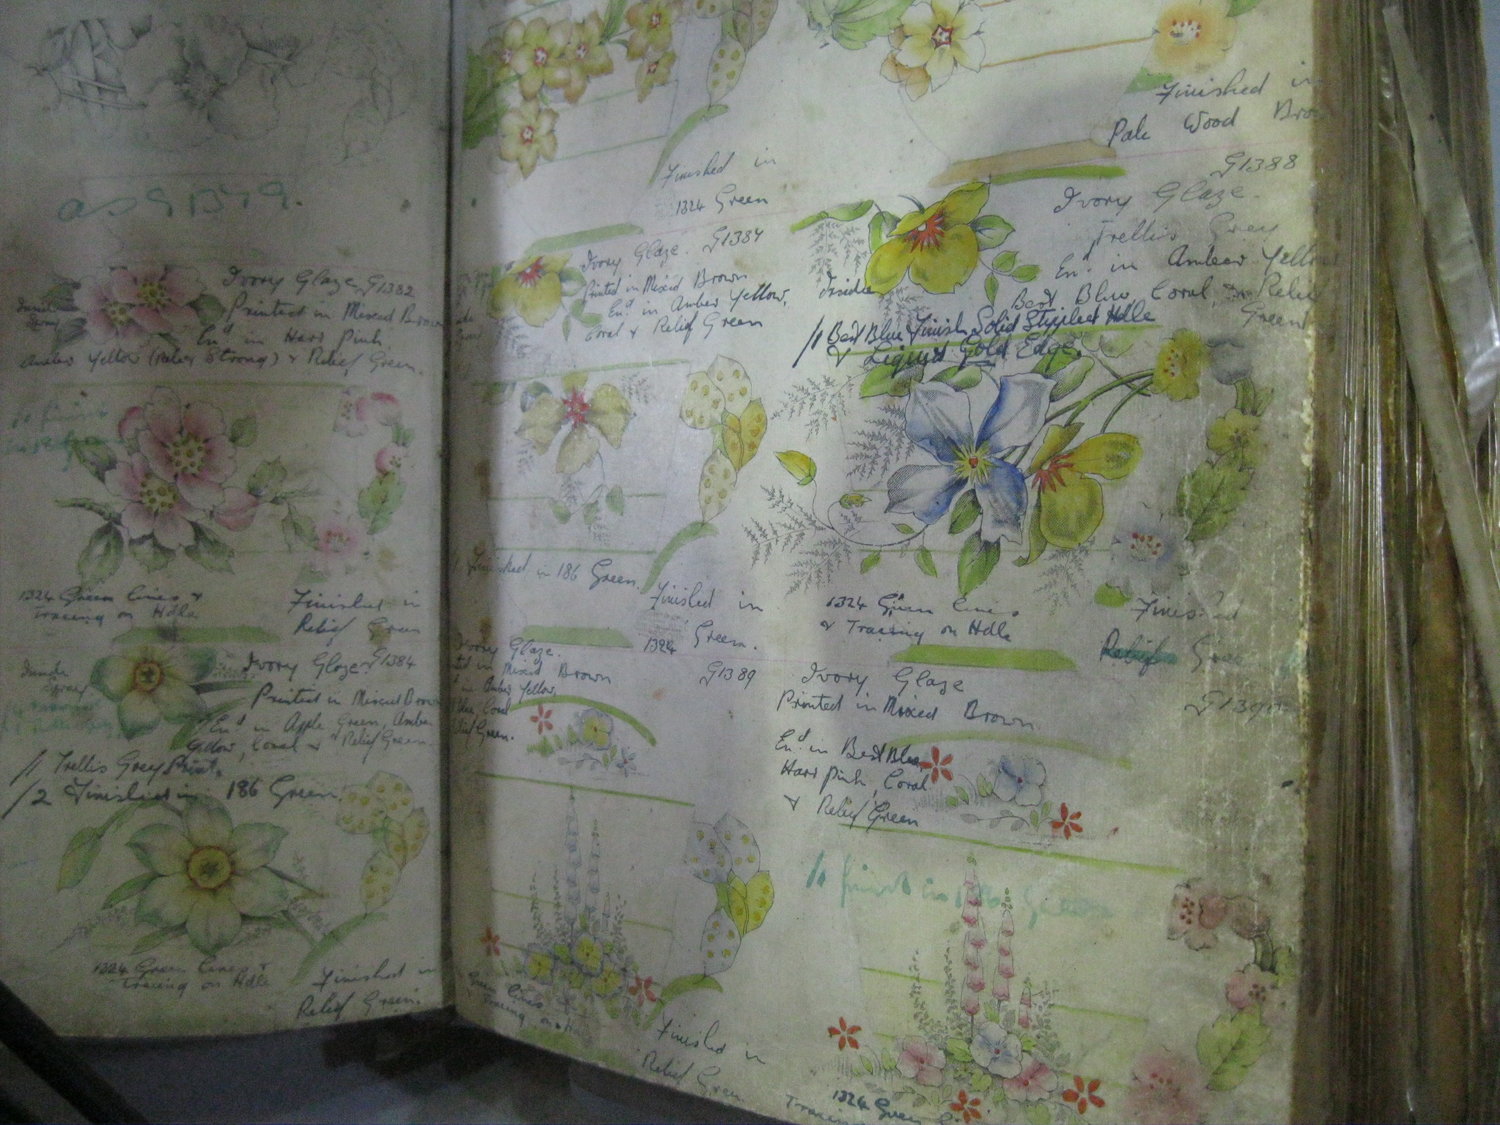 as G1379.
Ivory Glaze. G1382
Inside
Spray
Printed in Mixed Brown
End in Haws Pink,
Amber Yellow (Rather Strong) & Relief Green.
1324 Green Lines &
Tracing on Hdle
Finished in
Relief Green
Inside
Spray
Ivory Glaze. G1384
Printed in Mixed Brown
End in Apple Green, Amber
Yellow, Coral & Relief Green
/1 Trellis Grey Print.
/2 Finished in 186 Green.
1324 Green Lines &
Tracing on Hdle
Finished in
Relief Green.
Finished in
1324 Green
Ivory Glaze. G1387
Printed in Mixed Brown
End in Amber Yellow,
Coral & Relief Green
Finished in 186 Green
Finished in
1324 Green.
Ivory Glaze. G1389
Mixed Brown
in Amber Yellow,
Blue Coral
Relief Green.
Green Lines
& Tracing on H
Finished in
Relief Green
Finished in
Pale Wood Brown
G1388
Ivory Glaze.
Trellis Grey
End in Amber Yellow
Best Blue, Coral, & Relief
Green
Inside
/1 Best Blue Finish, Solid Stippled Hdle
& Liquid Gold Edge.
1324 Green Lines
& Tracing on Hdle
Finished
Relief Green
G1390
Ivory Glaze
Printed in Mixed Brown.
End in Best Blue,
Haws Pink, Coral
& Relief Green
/1 finish in 186 Green
1324 Green